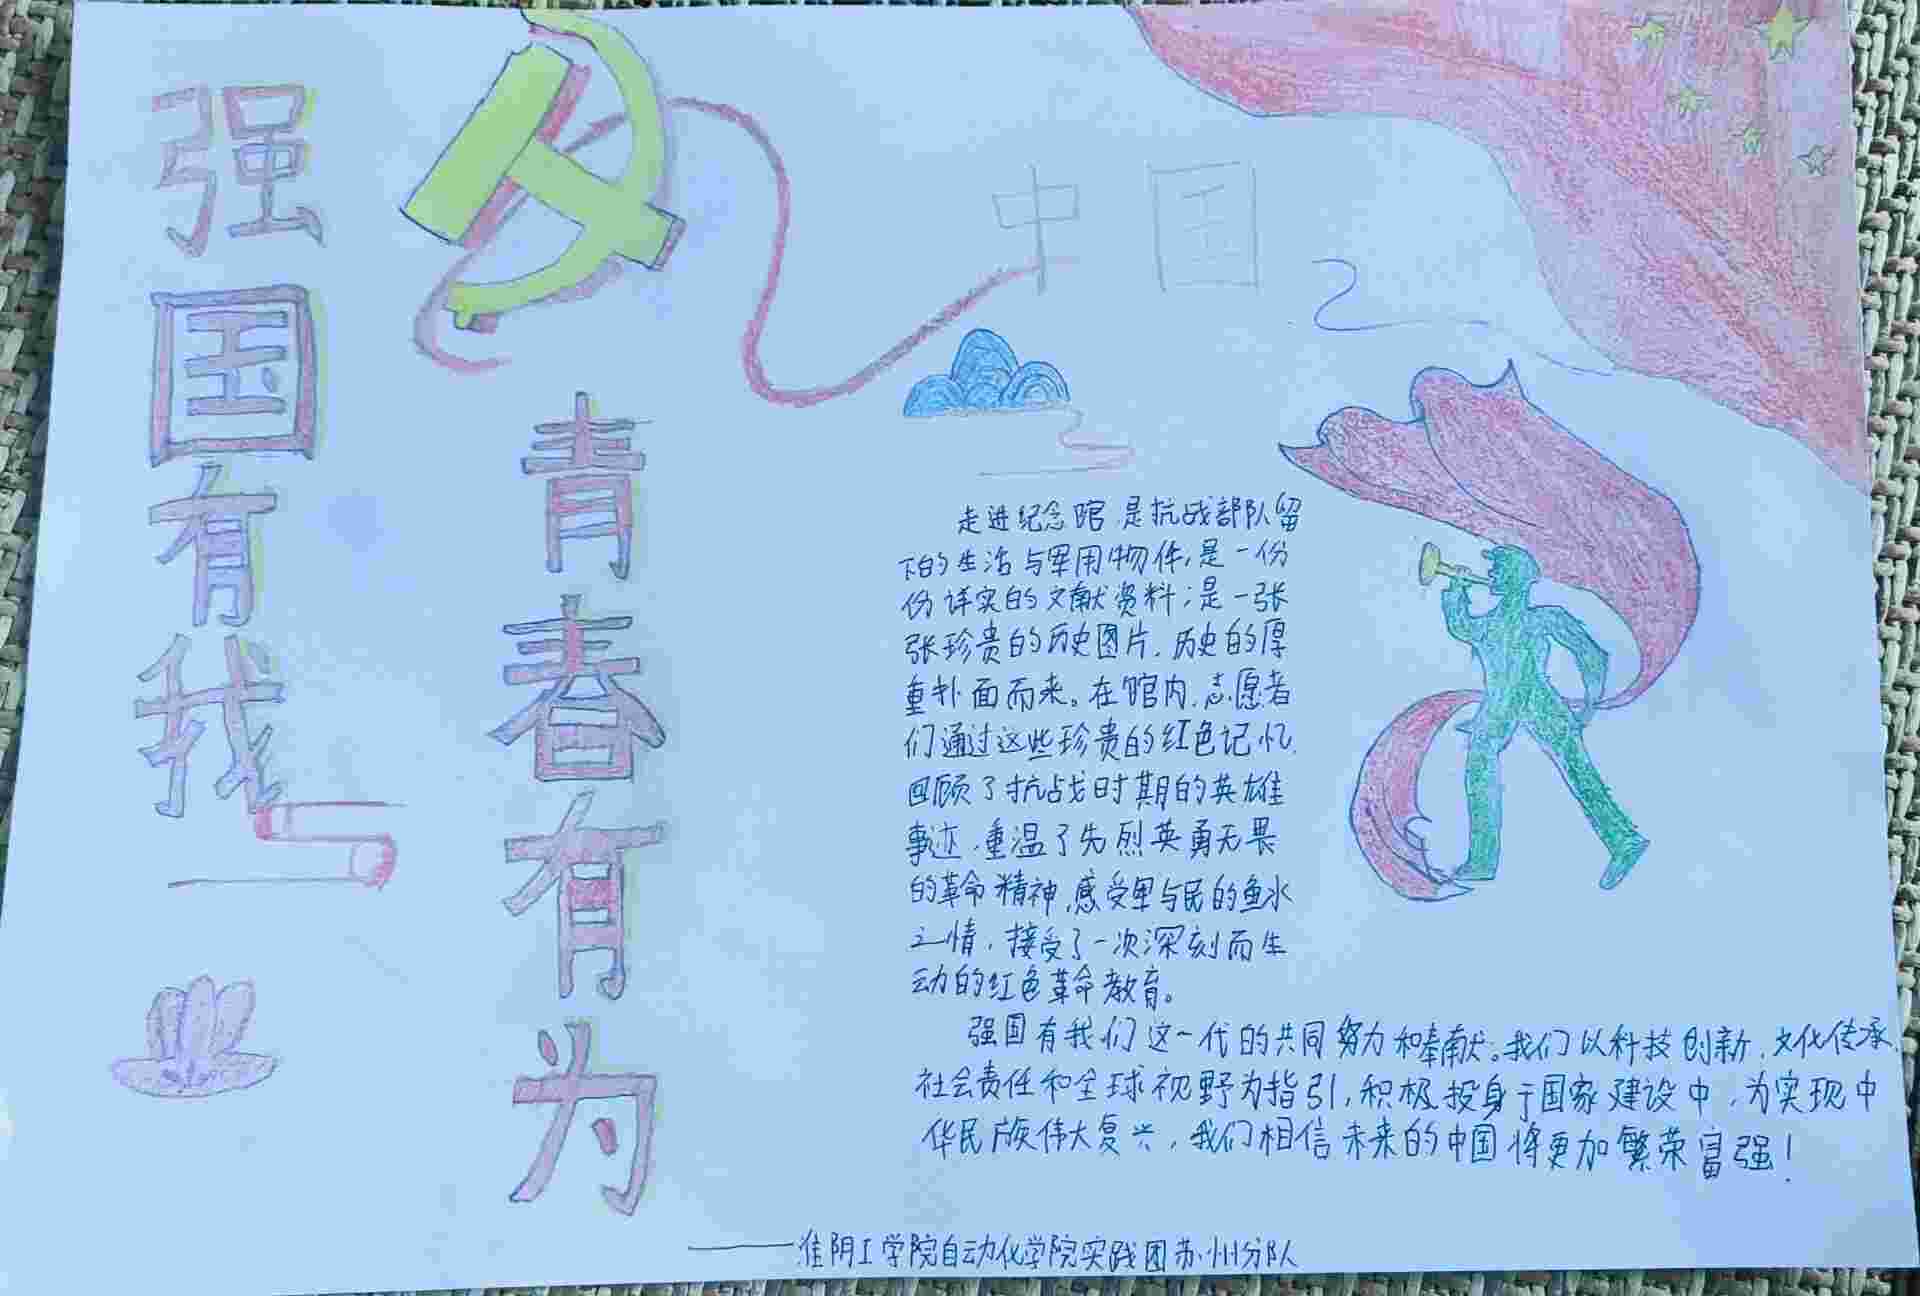 强国有我
青春有为
中国
走进纪念馆,是抗战部队留
下的生活与军用物件,是一份
份详实的文献资料;是一张
张珍贵的历史图片,历史的厚
重扑面而来。在馆内,志愿者
们通过这些珍贵的红色记忆,
回顾了抗战时期的英雄
事迹,重温了先烈英勇无畏
的革命精神,感受军与民的鱼水
之情,接受了一次深刻而生
动的红色革命教育。
强国有我们这一代的共同努力和奉献。我们以科技创新,文化传承,
社会责任和全球视野为指引,积极投身于国家建设中,为实现中
华民族伟大复兴,我们相信未来的中国将更加繁荣富强!
——淮阴工学院自动化学院实践团苏州分队